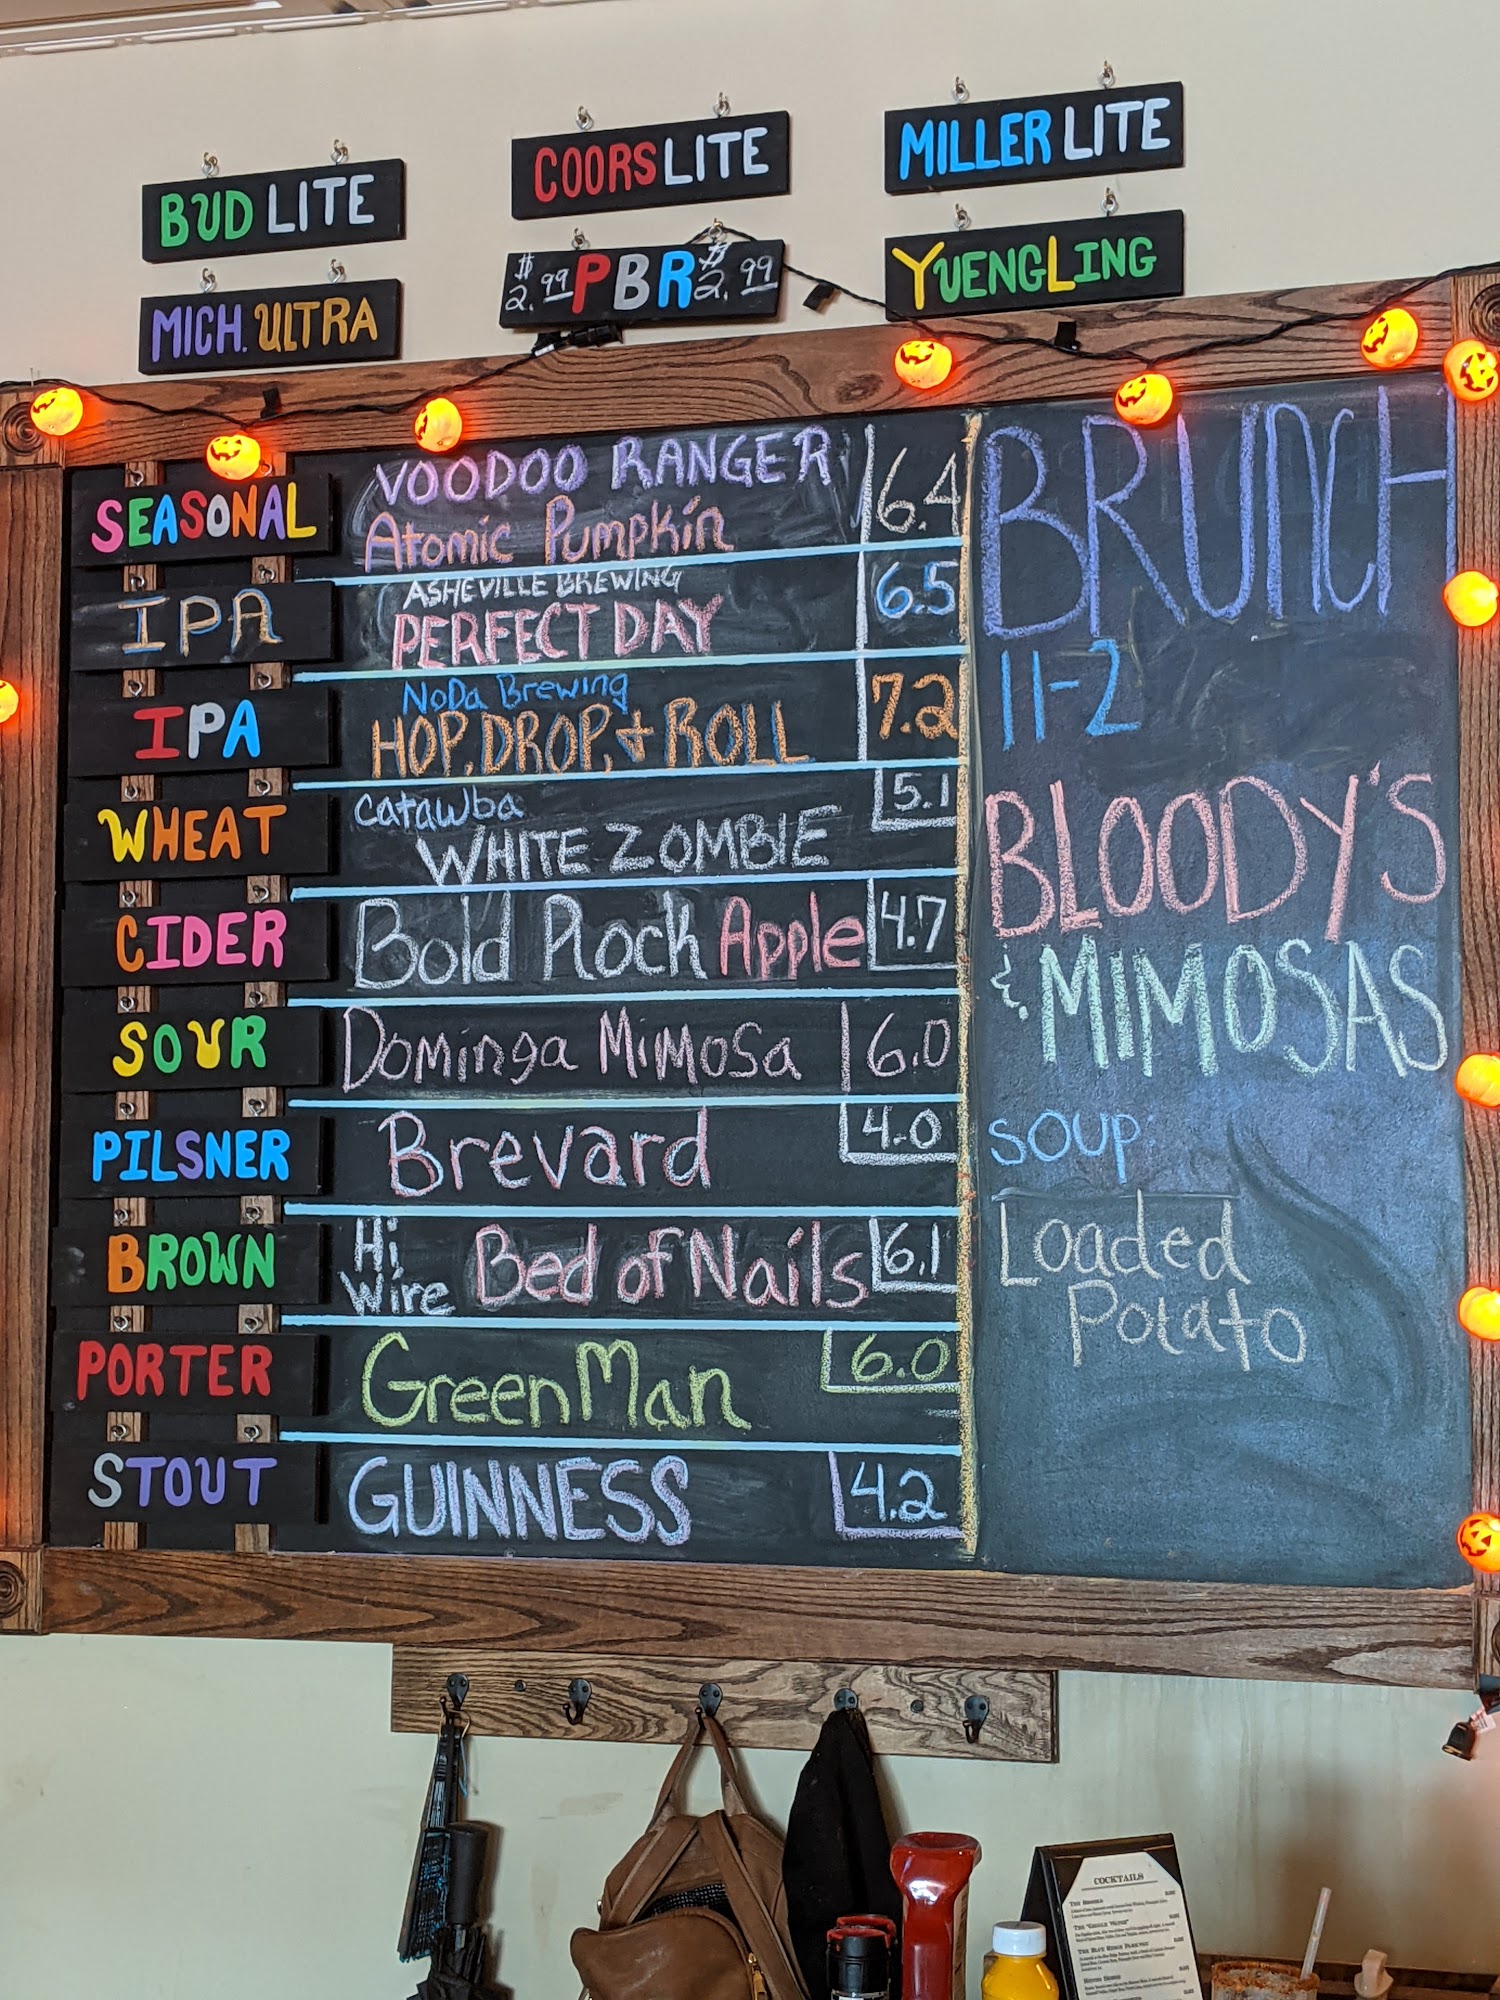 BUD LITE
COORS LITE
MILLER LITE
MICH. ULTRA
$2.99 PBR $2.99
YUENGLING
SEASONAL
VOODOO RANGER
Atomic Pumpkin
6.4
IPA
ASHEVILLE BREWING
PERFECT DAY
6.5
IPA
NoDa Brewing
HOP, DROP, + ROLL
7.2
WHEAT
Catawba
WHITE ZOMBIE
5.1
CIDER
Bold Rock Apple
4.7
SOUR
Dominga MiMoSa
6.0
PILSNER
Brevard
4.0
BROWN
Hi
Wire
Bed of Nails
6.1
PORTER
GreenMan
6.0
STOUT
GUINNESS
4.2
BRUNCH
11-2
BLOODY'S
& MIMOSAS
SOUP:
Loaded
Potato
COCKTAILS